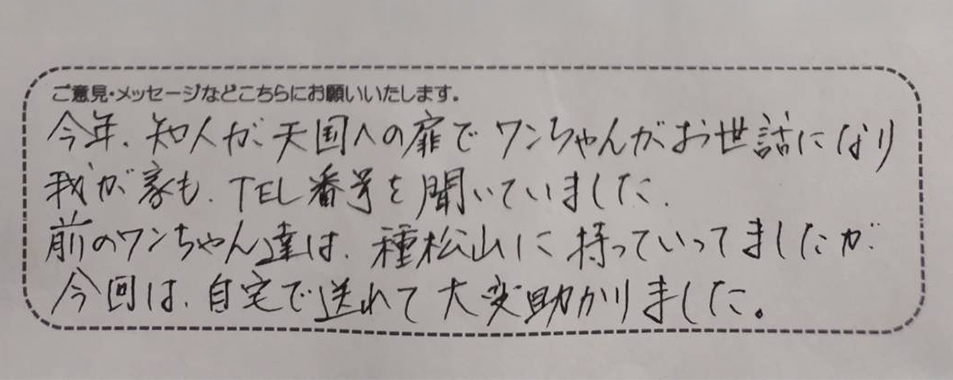 ご意見・メッセージなどこちらにお願いいたします。
今年、知人が、天国への扉でワンちゃんがお世話になり
我が家も、TEL番号を聞いていました。
前のワンちゃん達は、種松山に持っていってましたが、
今回は、自宅で送れて大変助かりました。